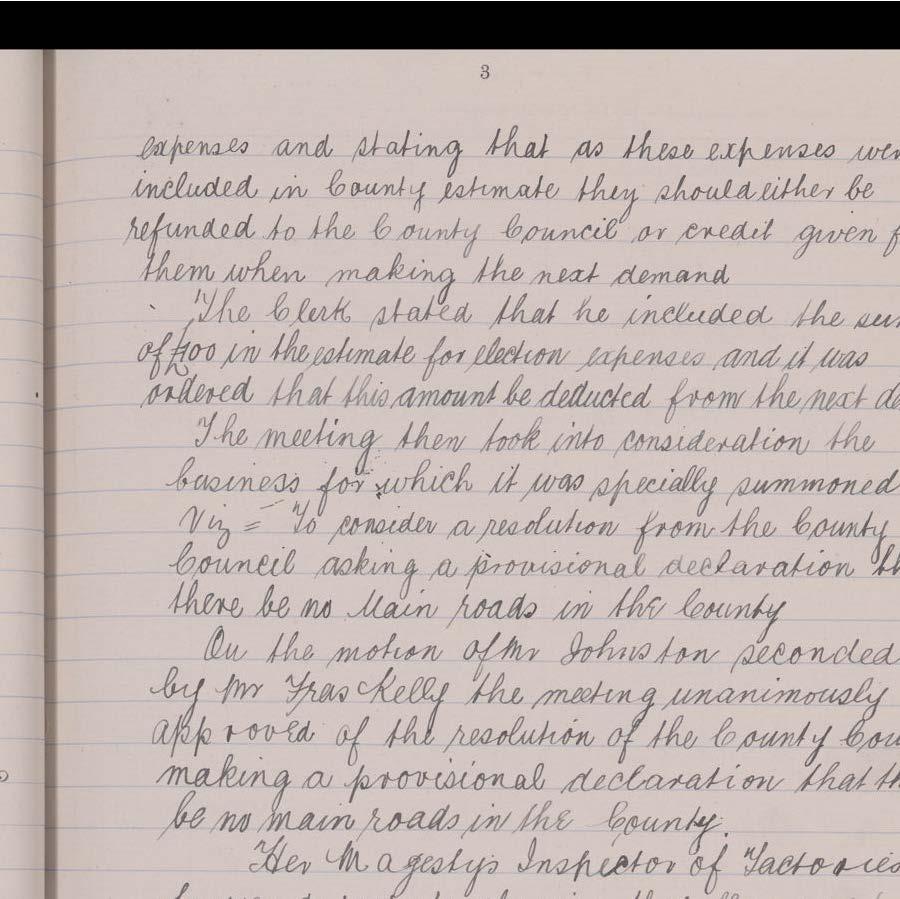 3
expenses and stating that as these expenses wer
included in County estimate they should either be
refunded to the County Council or credit given f
them when making the next demand
The Clerk stated that he included the su
of £100 in the estimate for election expenses and it was
ordered that this amount be deducted from the next de
The meeting then took into consideration the
business for which it was specially summoned
Viz = To consider a resolution from the County
Council asking a provisional declaration th
there be no Main roads in the County
On the motion of Mr Johnston seconded
by Mr Fras Kelly the meeting unanimously
approved of the resolution of the County Cou
making a provisional declaration that th
be no main roads in the County.
Her Magestys Inspector of Factories